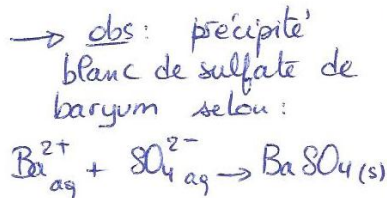 → obs : précipité
blanc de sulfate de
baryum selon :
Ba²⁺aq + SO₄²⁻aq → BaSO₄(s)